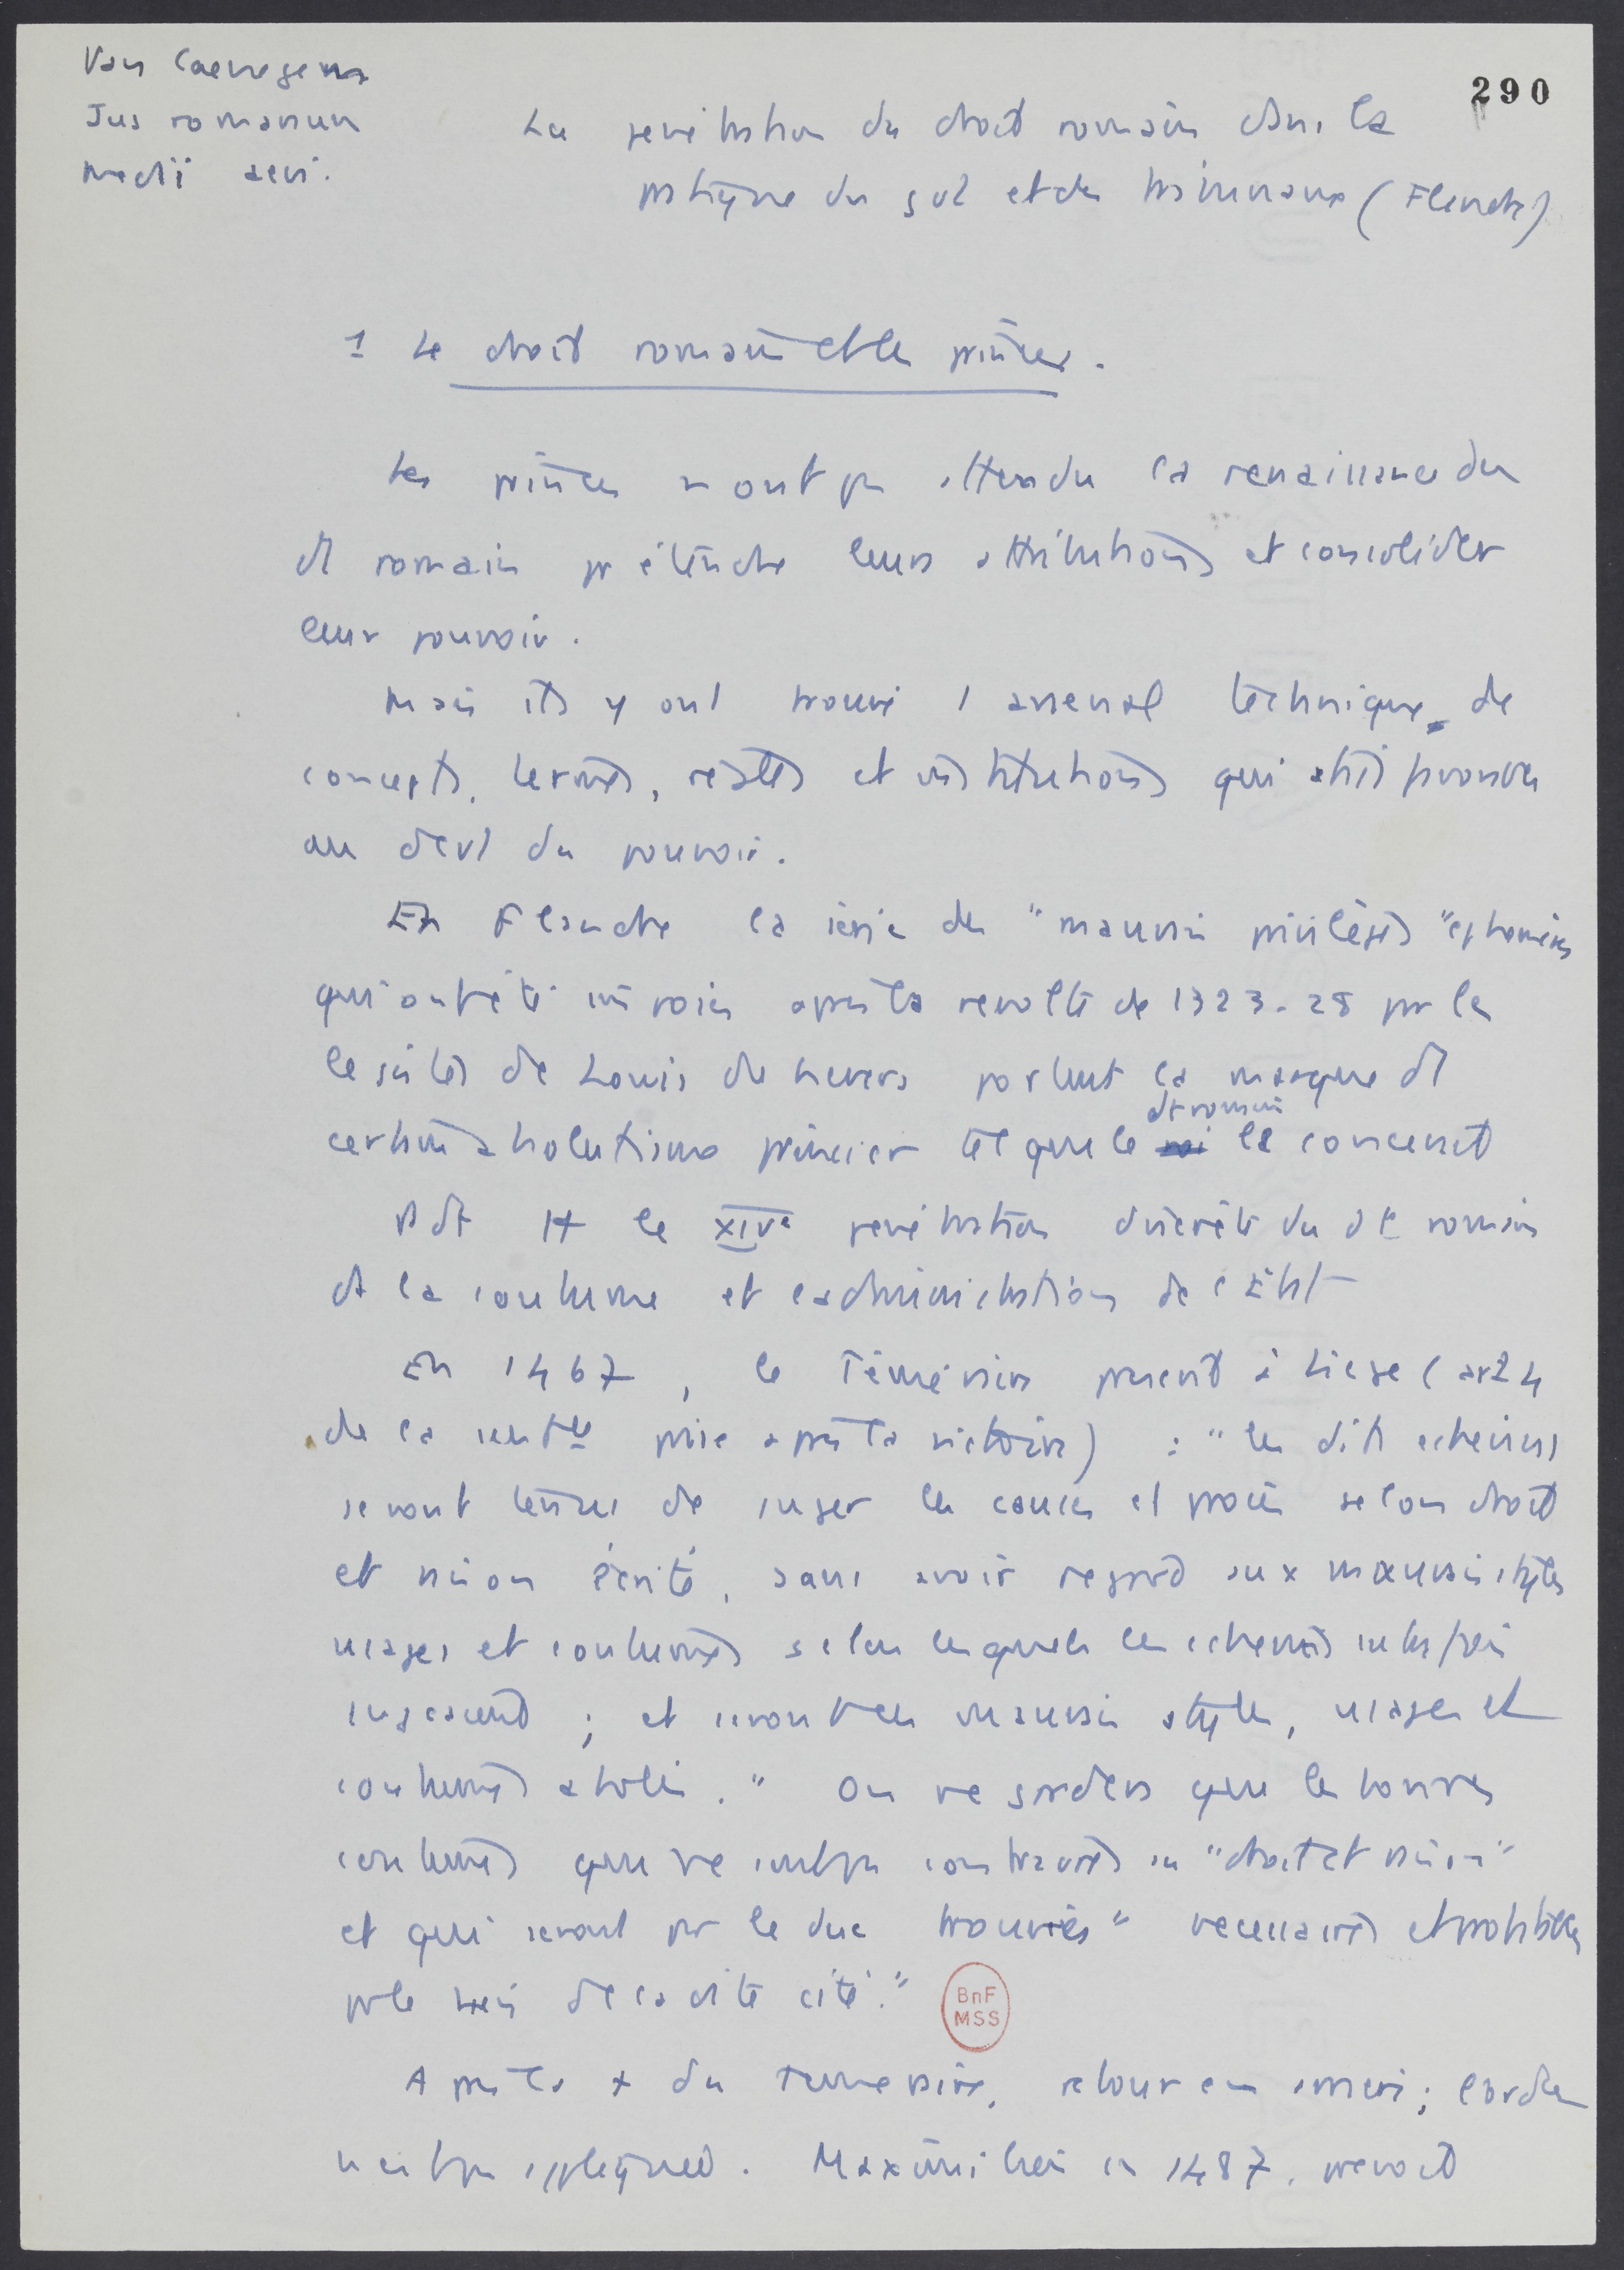 Van Caenegem
Jus romanum
medii aevi.
290
La pénétration du droit romain dans la
pratique du gvt et des tribunaux (Flandre)
1 Le droit romain et les princes.
Les princes n ont pas attendu la renaissance du
dt romain pr étendre leurs attributions et consolider
leur pouvoir.
Mais ils y ont trouvé 1 arsenal technique de
concepts, termes, règles et institutions qui
au devt du pouvoir.
En Flandre la série des "mauvais privilèges" éphémères
qui ont été après la révolte de 1323-28 pr les
légistes de Louis de Nevers portent la marque d1
certain absolutisme princier tel que le dt romain le concevait
Pdt tt le XIVe pénétration discrète du dt romain
ds la coutume et l administration de l Etat
En 1467, le Téméraire prescrit à Liège (art 4
de la sentce prise après la victoire) : "les dits echevins
seront tenus de juger les causes et procès selon droit
et raison écrite, sans avoir regard aux mauvais styles
usages et coutumes selon lesquels les echevins autrefois
jugeaient ; et seront ces mauvais styles, usages et
coutumes abolis." On ne gardera que les bonnes
coutumes que ne sont pas contraires au "droit et raison"
et qui seront pr le duc trouvées "necessaires et profitables
pr le bien de la dite cité."
BnF
MSS
Après la + du Temeraire, retour en arrière ; l ordre
n est pas appliqué. Maximilien en 1487, prevoit